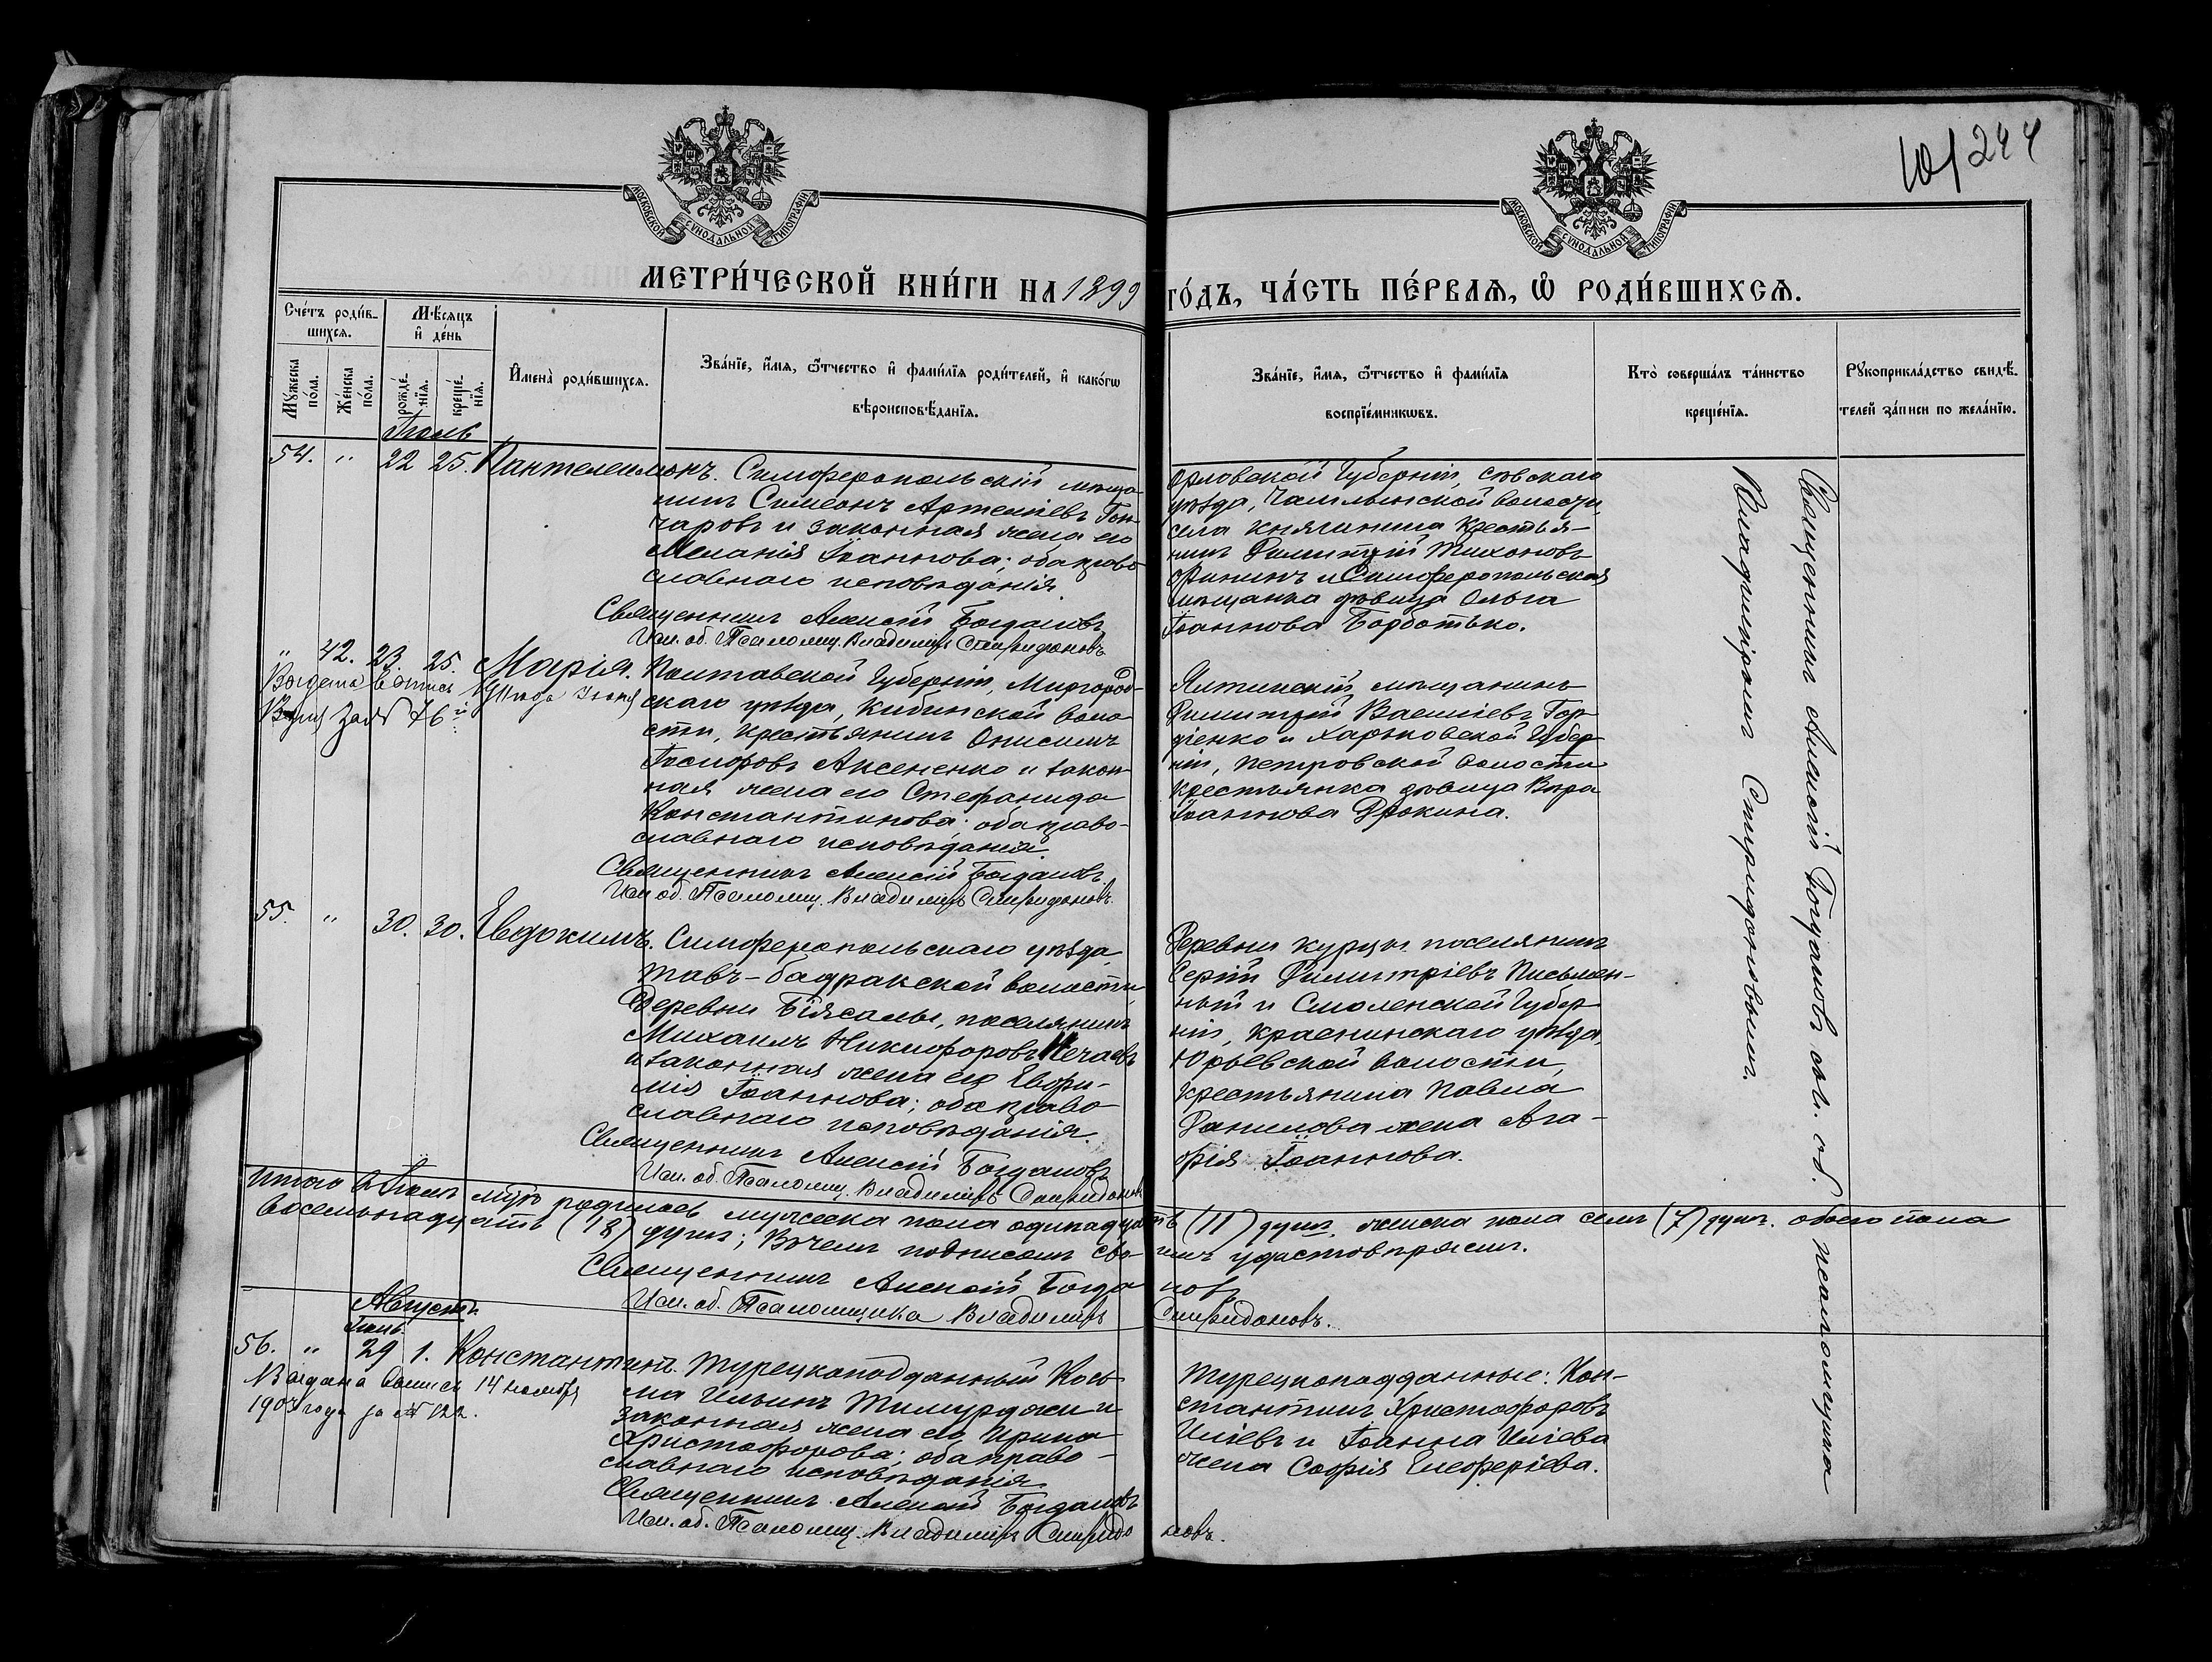 101 244
МОСКОВСКОЙ СѴНОДАЛЬНОЙ ТИПОГРАФІИ
МОСКОВСКОЙ СѴНОДАЛЬНОЙ ТИПОГРАФІИ
МЕТРИ́ЧЕСКОЙ КНИ́ГИ НА 1899 ГО́ДЪ, ЧА́СТЬ ПЕ́РВАѦ, Ѽ РОДИ́ВШИХСѦ.
Сче́тъ роди́в-
шихсѧ.
Мꙋ́жеска по́ла.
Же́нска по́ла.
Мѣ́сѧцъ
и҆ де́нь
рожде́-
нїѧ.
креще́-
нїѧ.
И҆мена̀ роди́вшихсѧ.
Зва́нїе, и҆́мѧ, ѻ҆́тчество и҆ фами́лїѧ роди́телей, и҆ како́гѡ
вѣроисповѣ́данїѧ.
Зва́нїе, и҆́мѧ, ѻ҆́тчество и҆ фами́лїѧ
воспрїе́мникѡвъ.
Кто̀ соверша́лъ та́инство
креще́нїѧ.
Рꙋкоприкла́дство свидѣ́-
телей за́писи по жела́нїю.
Іюль
54. " 22 25. Пантелеимонъ. Симферопольскій мѣща-
нинъ Симеонъ Артеміевъ Гон-
чаровъ и законная жена его
Меланія Іоаннова; оба право-
славнаго исповѣданія.
Священникъ Алексій Богдановъ
Исп. об. Псаломщ. Владиміръ Спиридоновъ
Орловской Губерніи, Сѣвскаго
уѣзда, волости
села Княгинина крестья-
нинъ Димитрій Тихоновъ
и Симферопольская
мѣщанка дѣвица Ольга
Іоаннова Борботько.
" 42. 23. 25. Марія. Полтавской Губерніи, Миргород-
скаго уѣзда, Кибинской воло-
сти, крестьянинъ Онисимъ
Аксененко и закон-
ная жена его Стефанида
Константинова; оба право-
славнаго исповѣданія.
Священникъ Алексій Богдановъ.
Исп. об. Псаломщ. Владиміръ Спиридоновъ.
Выдана выпись
за № 76
Ялтинскій мѣщанинъ
Димитрій Василіевъ Гор-
діенко и Харьковской Губер-
ніи, Петровской волости
крестьянка дѣвица Вѣра
Іоаннова Дрокина.
55. " 30. 30. Евдокимъ. Симферопольскаго уѣзда,
Тавъ-бадракской волости,
деревни Біясалы, поселянинъ
Михаилъ Никифоровъ Нечаевъ
и законная жена его Евфи-
мія Іоаннова; оба право-
славнаго исповѣданія.
Священникъ Алексій Богдановъ
Исп. об. Псаломщ. Владиміръ Спиридоновъ
Деревни Курцы поселянинъ
Сергій Димитріевъ Письмен-
ный и Смоленской Губер-
ніи, Краснинскаго уѣзда,
Юрьевской волости,
крестьянина Павла
Данилова жена Ага-
фія Іоаннова.
Итого въ Іюлѣ мѣс. родилось мужеска пола одинадцать (11) душъ, женска пола семь (7) душъ. обоего пола
восемьнадцать (18) душъ; въ чемъ подписомъ сво- имъ удостовѣряемъ.
Священникъ Алексій Богда- новъ
Исп. об. Псаломщика Владиміръ Спиридоновъ.
Августъ
Іюль
56. " 29 1. Константинъ. Турецкоподданный Косъ-
ма Ильинъ Тимурджи и
законная жена его Ирина
Христофорова; оба право-
славнаго исповѣданія
Священникъ Алексій Богдановъ
Исп. об. Псаломщ. Владиміръ Спиридо- новъ.
Выдана выпись 14 ноября
1903 года за № 122.
Турецкоподданные: Кон-
стантинъ Христофоровъ
Иліевъ и Іоанна Иліева
жена Софія Елеферіева.
Священникъ Алексій Богдановъ съ исп. об. псаломщика
Владиміромъ Спиридоновымъ.